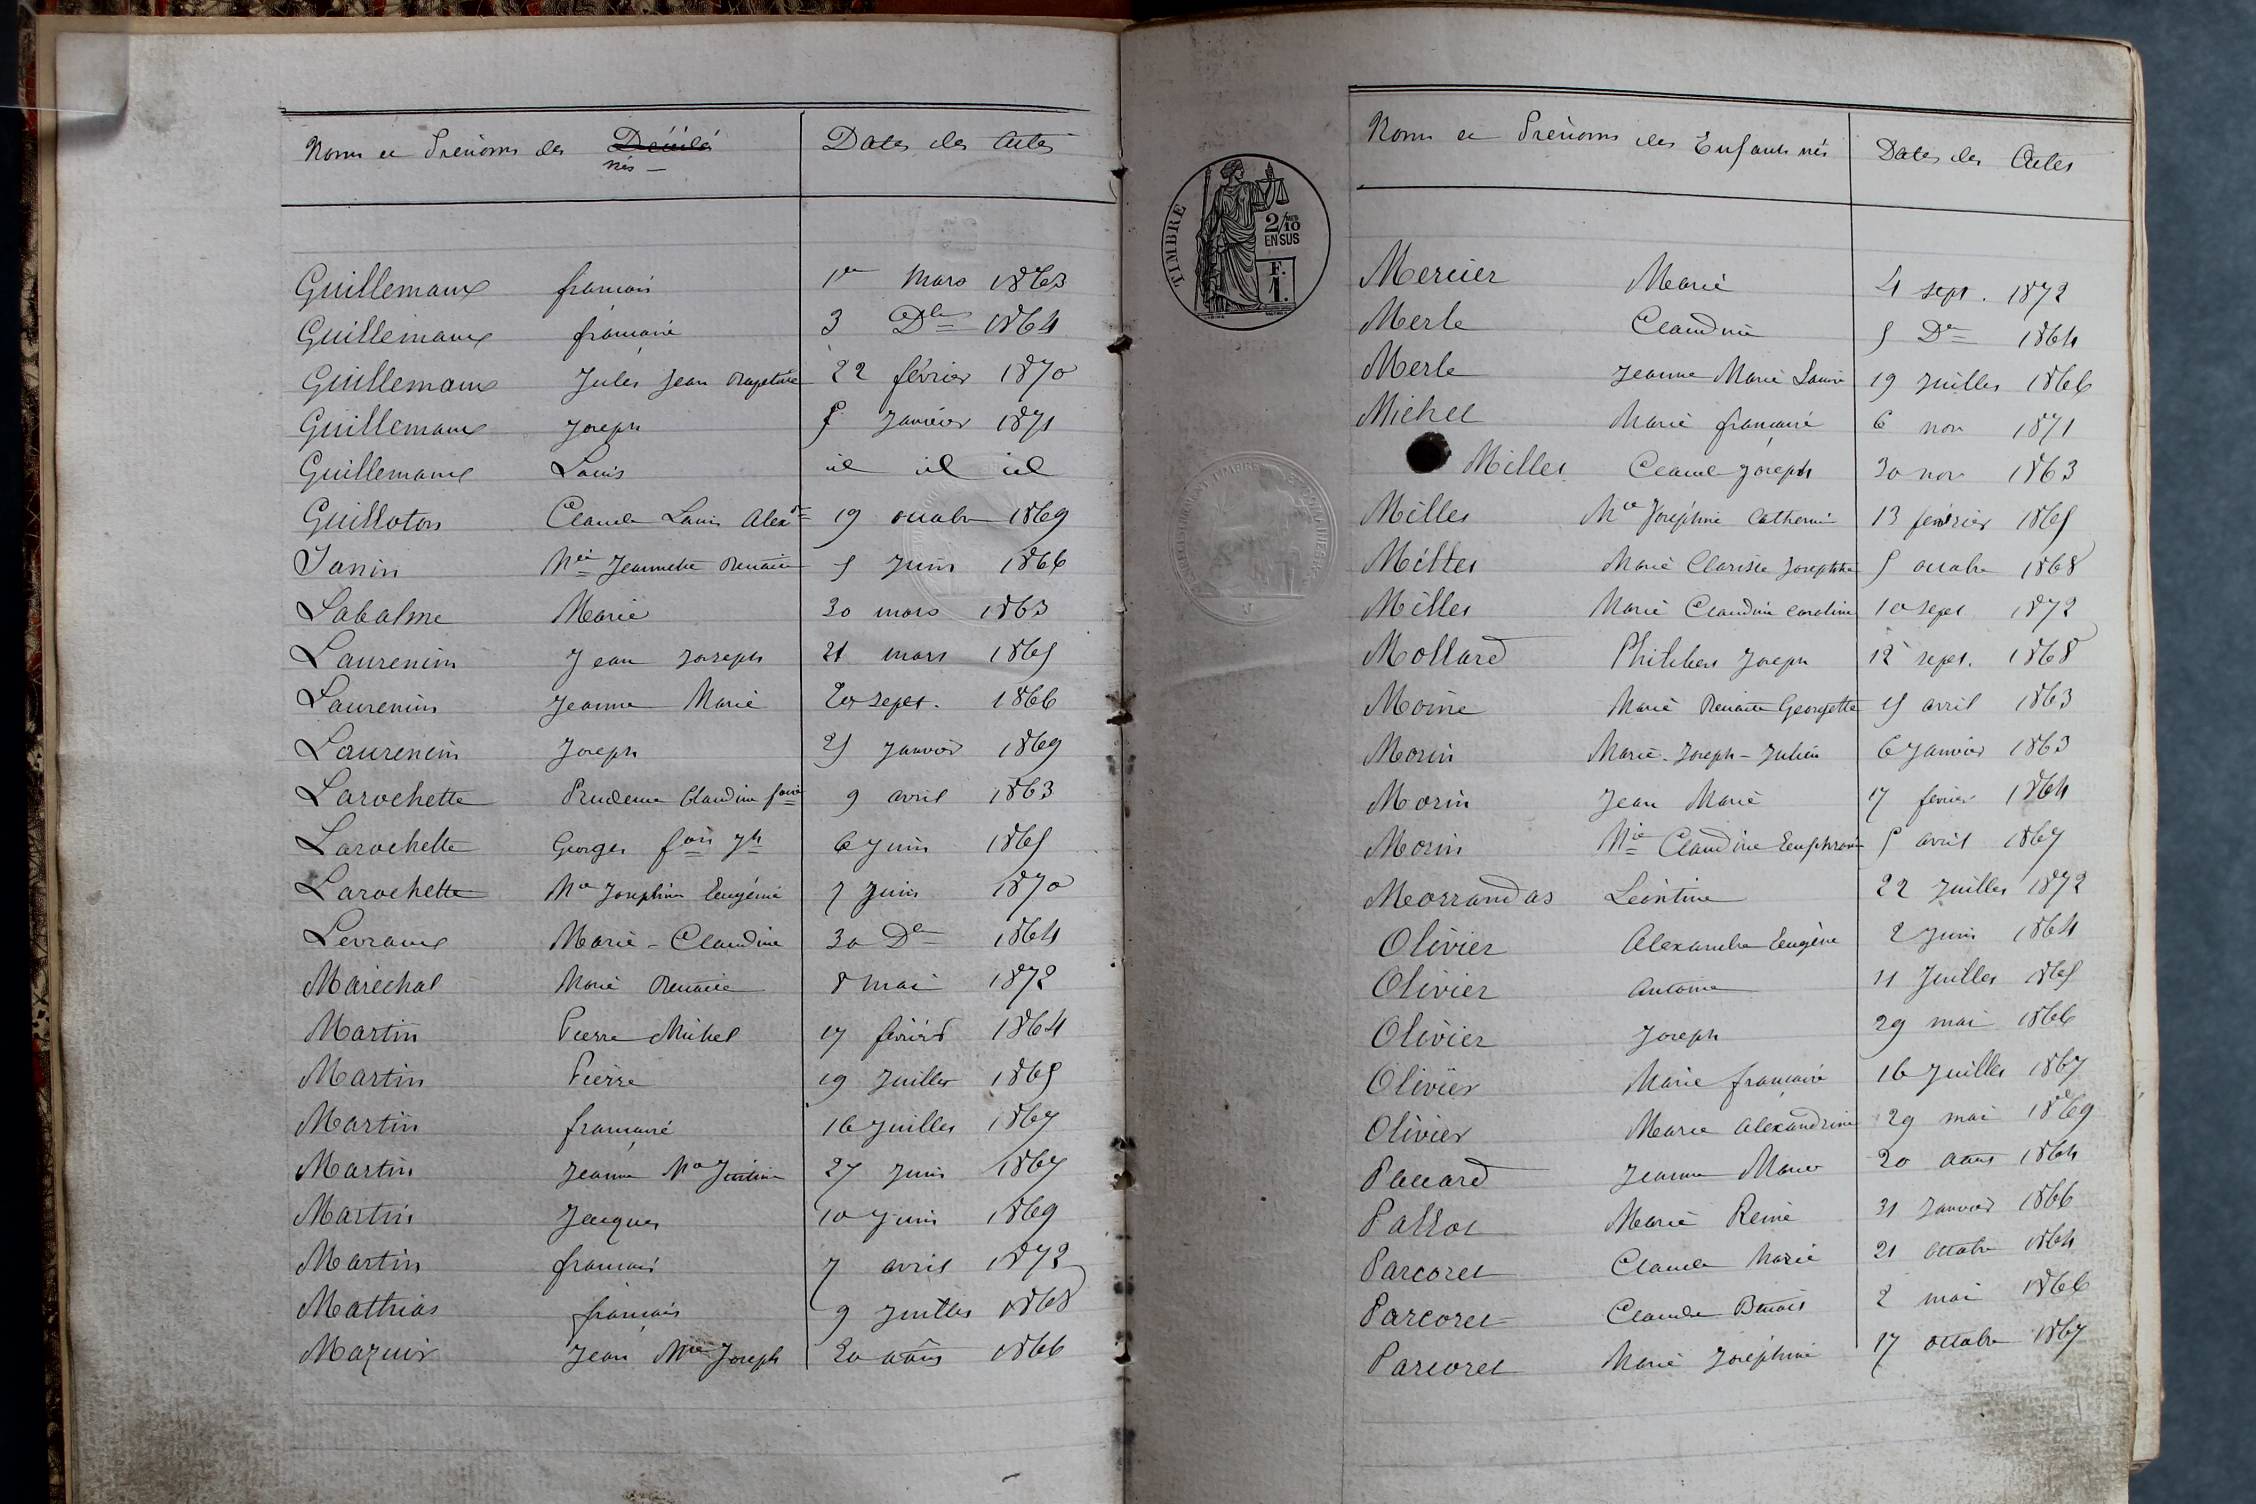 Noms et Prénoms des Décédés Dates des Actes
nés
Guillemaux françois 1er Mars 1863
Guillemaux françoise 3 Dbre 1864
Guillemaux Jules Jean Baptiste 22 février 1870
Guillemaux Joseph 5 Janvier 1871
Guillemaux Louis id id id
Guilloton Claude Louis Alexdre 19 octobre 1869
Janin Mie Jeannette Benoite 5 Juin 1866
Labalme Marie 30 mars 1863
Laurencin Jean Joseph 21 mars 1865
Laurencin Jeanne Marie 20 sept. 1866
Laurencin Joseph 25 Janvier 1869
Larochette Prudence Claudine 9 avril 1863
Larochette Georges fois jh 6 Juin 1865
Larochette Mie Joséphine Eugénie 7 Juin 1870
Levraux Marie - Claudine 30 Dbre 1864
Maréchal Marie Benoite 8 mai 1872
Martin Pierre Michel 17 février 1864
Martin Pierre 19 Juillet 1865
Martin françoise 16 Juillet 1867
Martin Jeanne Mie 27 Juin 1867
Martin Jacques 10 Juin 1869
Martin françois 7 avril 1872
Mathias françois 9 Juillet 1868
Mazuir Jean Mie Joseph 20 août 1866
Noms et Prénoms des Enfants nés Dates des Actes
TIMBRE
2/10
EN SUS
F.
1.
Mercier Marie 4 sept. 1872
Merle Claudine 5 Dre 1864
Merle Jeanne Marie Louise 19 Juillet 1866
Michel Marie françoise 6 nov 1871
Millet Claude Joseph 30 nov 1863
Millet Mie Joséphine Catherine 13 février 1865
Millet Marie Clarisse Josephte 5 octobre 1868
Millet Marie Claudine Caroline 10 sept 1872
Mollard Philibert Joseph 12 sept. 1868
Moine Marie Benoite Georgette 15 avril 1863
Morin Marie - Joseph - Julien 6 Janvier 1863
Morin Jean Marie 17 fevrier 1864
Morin Mie Claudine Euphrosine 5 avril 1867
Morrandas Léontine 22 Juillet 1872
Olivier Alexandre Eugène 2 Juin 1864
Olivier Antoine 11 Juillet 1865
Olivier Joseph 29 mai 1866
Olivier Marie françoise 16 Juillet 1867
Olivier Marie Alexandrine 29 mai 1869
Paccard Jeanne Marie 20 août 1864
Pallot Marie Reine 31 Janvier 1866
Parcoret Claude Marie 21 octobre 1864
Parcoret Claude Benoit 2 mai 1866
Parcoret Marie Joséphine 17 octobre 1867